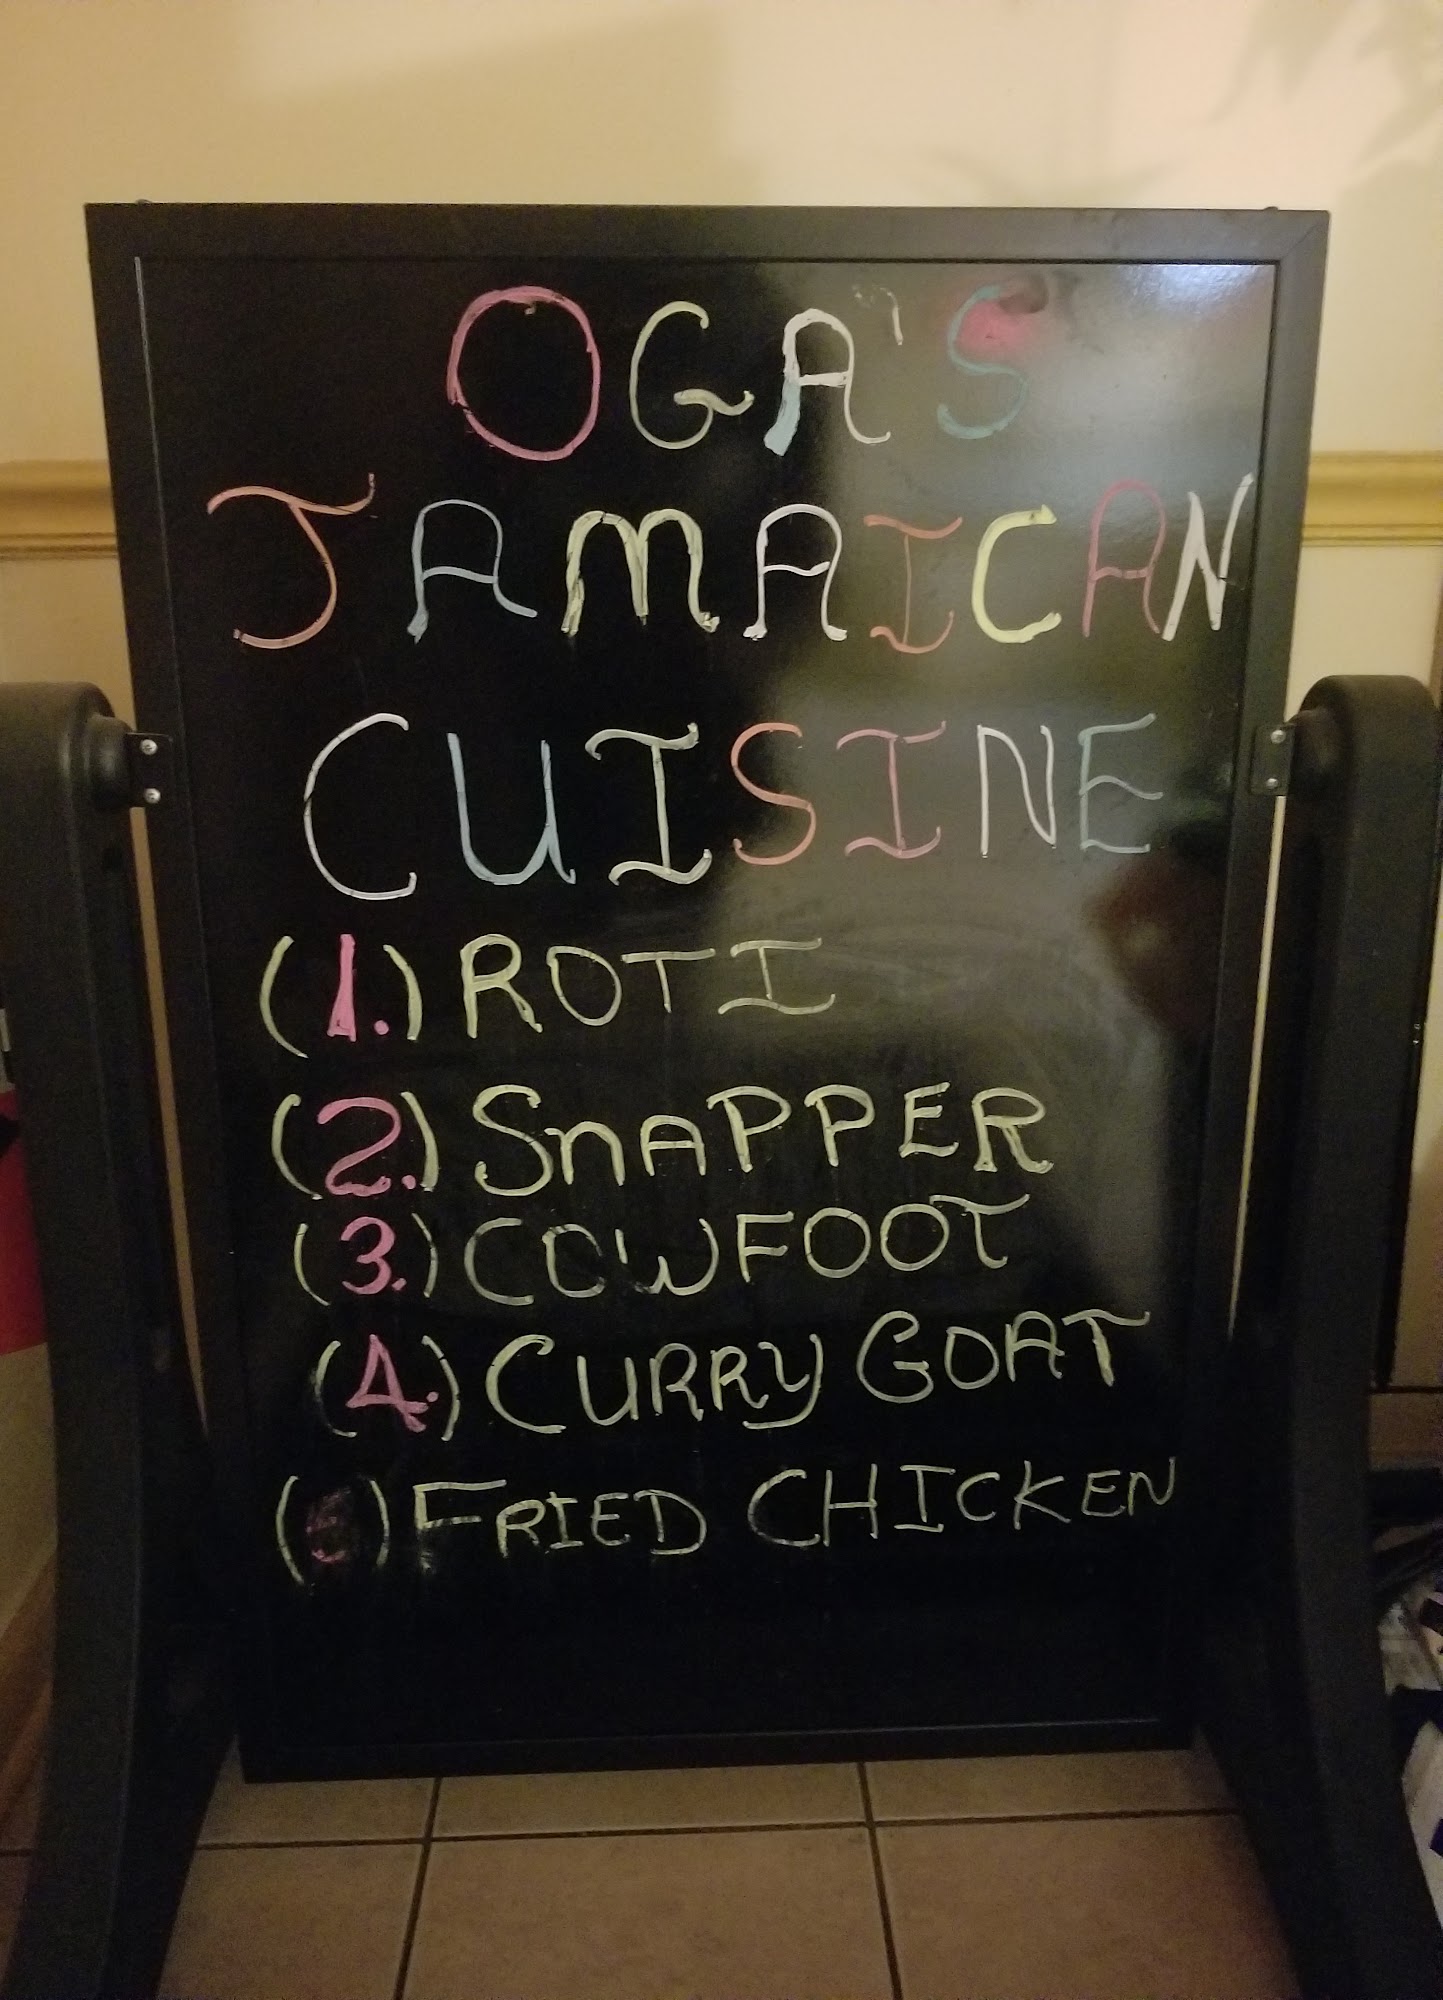 OGA'S
JAMAICAN
CUISINE
(1.) ROTI
(2.) SNAPPER
(3.) COWFOOT
(4.) CURRY GOAT
( ) FRIED CHICKEN